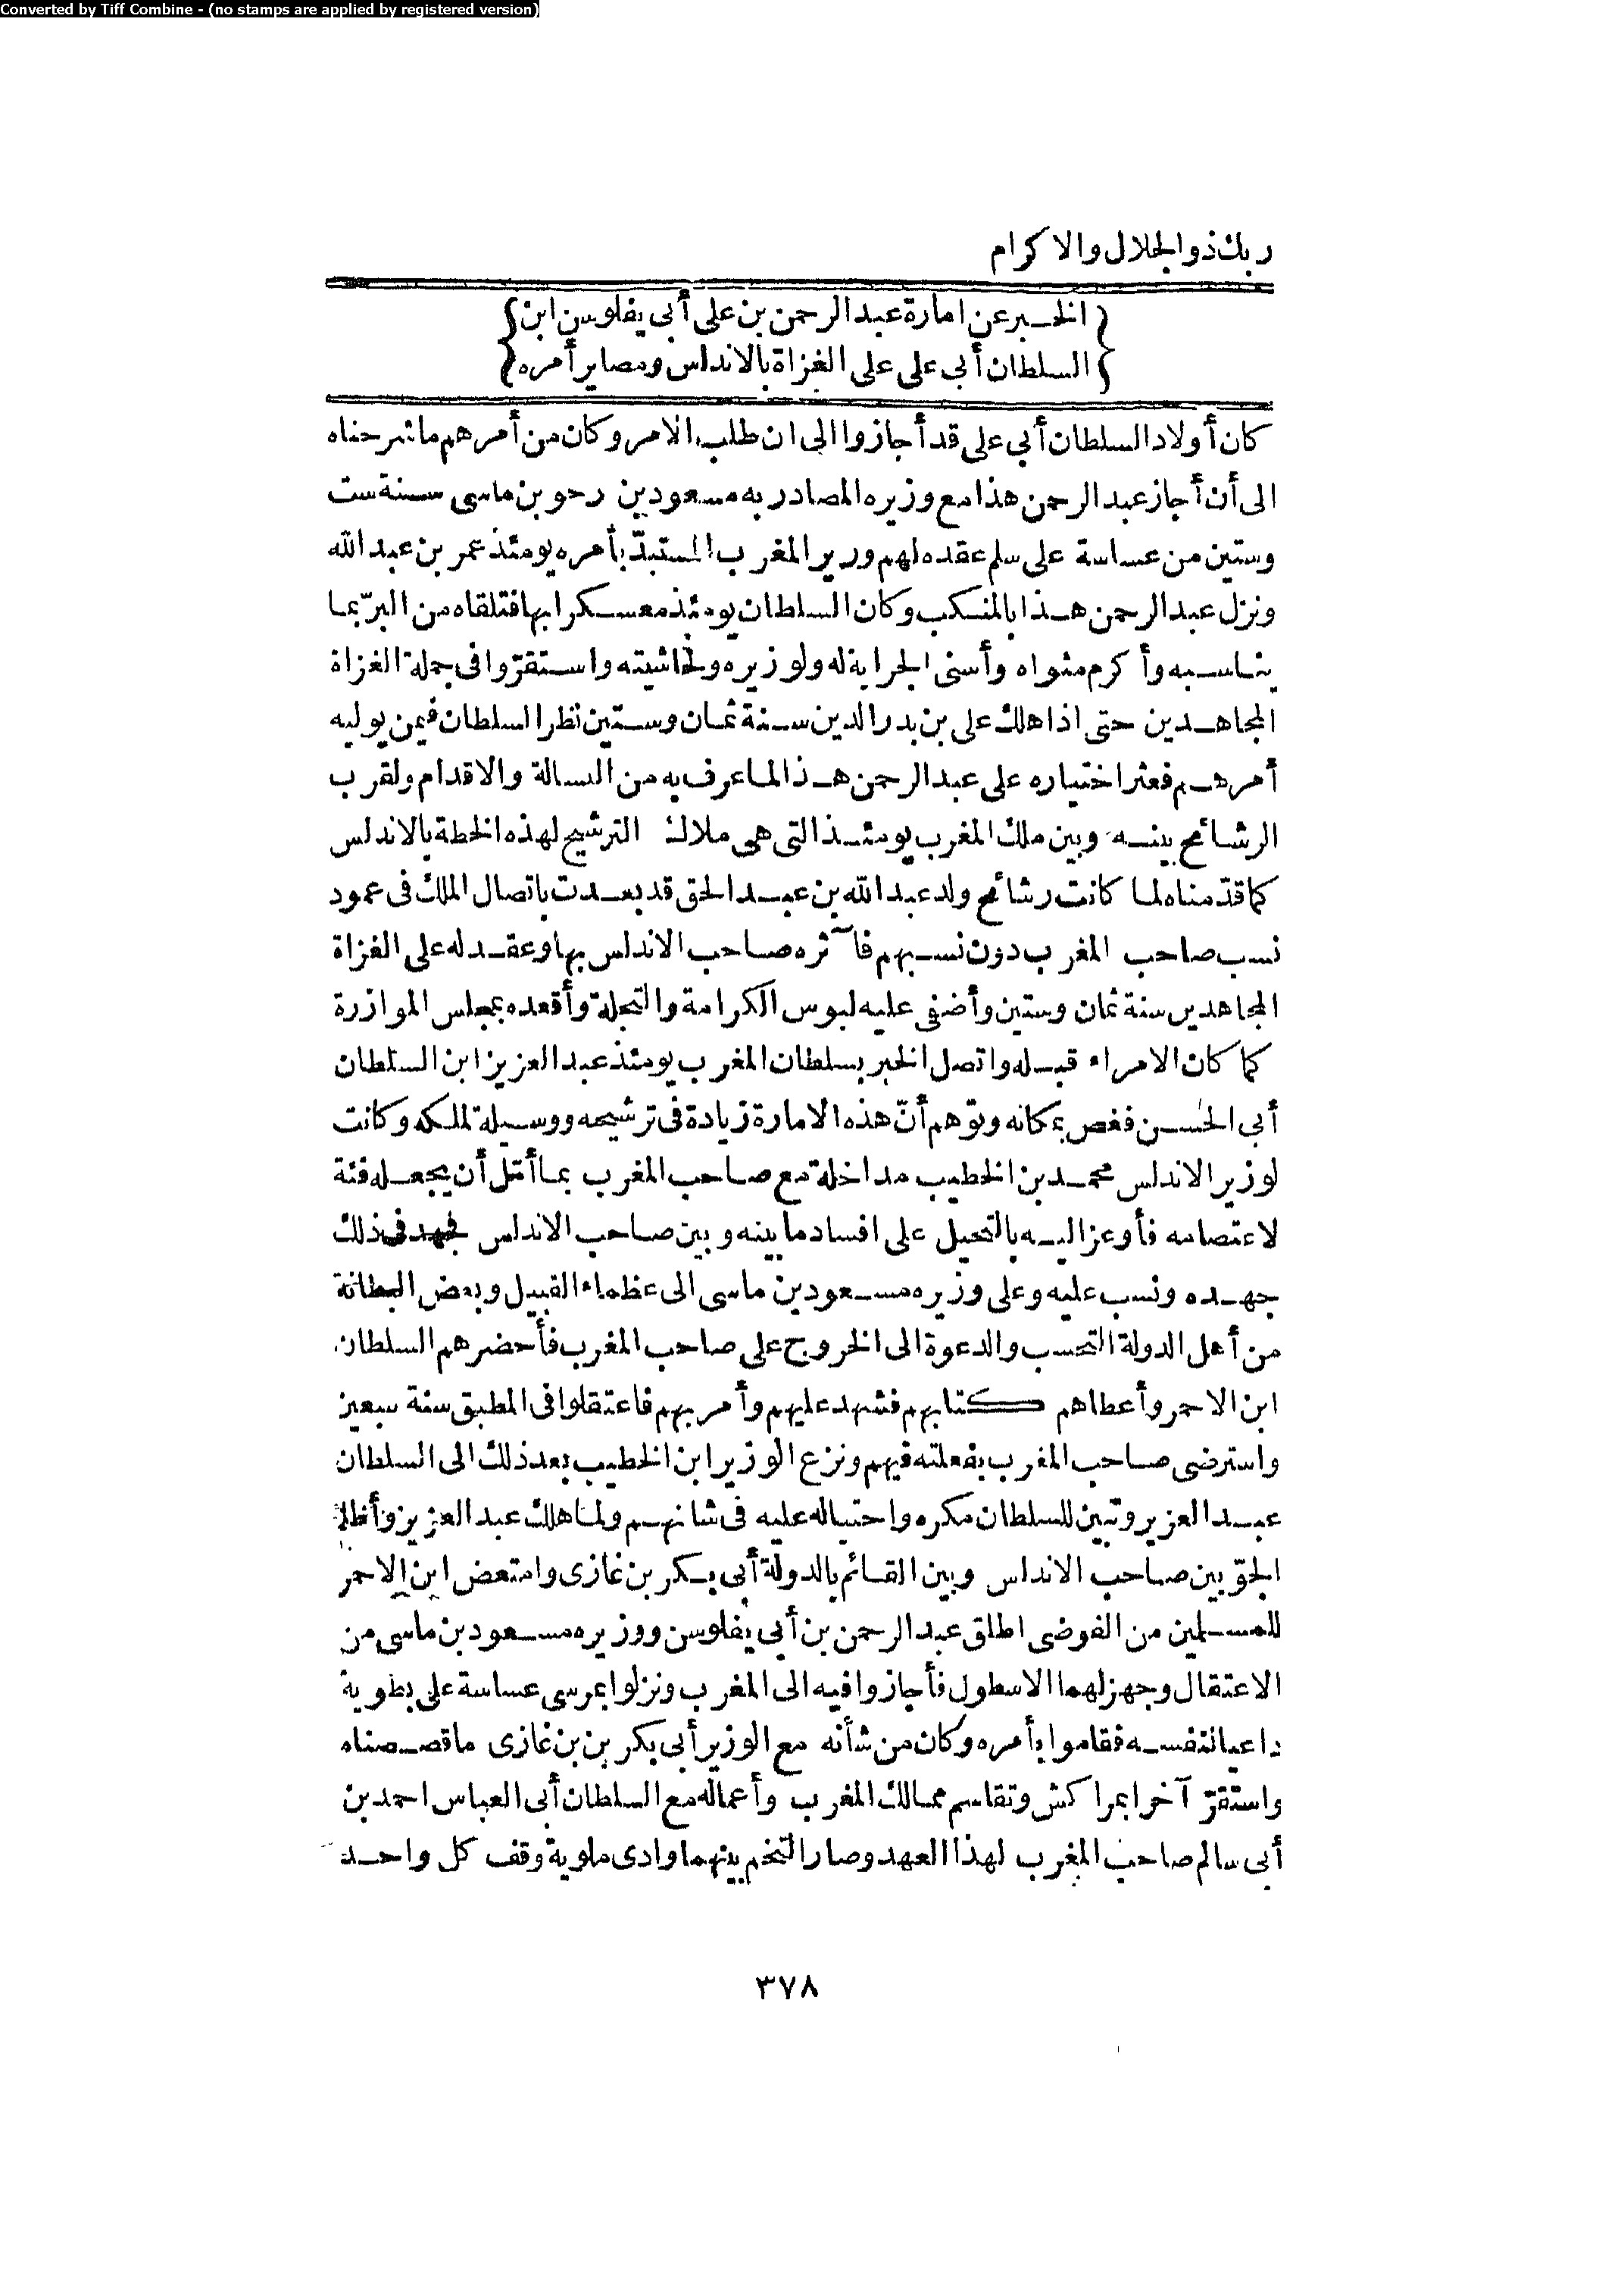 Converted by Tiff Combine - (no stamps are applied by registered version)
ربك ذو الجلال والاكرام
{الخبر عن امارة عبد الرحمن بن على أبى يفلوسن ابن}
{السلطان أبى على على الغزاة بالاندلس ومصاير أمره}
كان أولاد السلطان أبي على قد أجازوا الى ان طلب الامر وكان من أمرهم ما شرحناه
الى أن أجاز عبد الرحمن هذا مع وزيره المصادر به مسعود بن رحو بن ماسى سنة ست
وستين من عساسة على سلم عقده لهم وزير المغرب المستبدّ بأمره يومئذ عمر بن عبد الله
ونزل عبد الرحمن هذا بالمنكب وكان السلطان يومئذ معسكرا بها فتلقاه من البرّ بما
يناسبه وأكرم مثواه وأسنى الجراية له ولوزيره ولحاشيته واستقرّوا فى جملة الغزاة
المجاهدين حتى اذا هلك على بن بدر الدين سنة ثمان وستين نظر السلطان فيمن يوليه
أمرهم فعثر اختياره على عبد الرحمن هذا لما عرف به من البسالة والاقدام ولقرب
الرشائج بينه وبين ملك المغرب يومئذ التى هى ملاك الترشيح لهذه الخطة بالاندلس
كما قدّمناه لما كانت رشائج ولد عبد الله بن عبد الحق قد بعدت باتصال الملك فى عمود
نسب صاحب المغرب دون نسبهم فآثره صاحب الاندلس بها وعقد له على الغزاة
المجاهدين سنة ثمان وستين وأضفى عليه لبوس الكرامة والتجلة وأقعده بمجلس الموازرة
كما كان الامراء قبله واتصل الخبر بسلطان المغرب يومئذ عبد العزيز ابن السلطان
أبى الحسن فغص بمكانه وتوّهم أنّ هذه الامارة زيادة فى ترشيحه ووسيلة لملكه وكانت
لوزير الاندلس محمد بن الخطيب مداخلة مع صاحب المغرب بما أمّل أن يجعله فئة
لاعتصامه فأوعز اليه بالتحيل على افساد ما بينه وبين صاحب الاندلس فجهد فى ذلك
جهده ونسب عليه وعلى وزيره مسعود بن ماسى الى عظماء القبيل وبعض البطانة
من أهل الدولة التحسب والدعوة الى الخروج على صاحب المغرب فأحضرهم السلطان
ابن الاحمر وأعطاهم كتابهم فشهد عليهم وأمر بهم فاعتقلوا فى المطبق سنة سبعين
واسترضى صاحب المغرب بفعلته فيهم ونزع الوزير ابن الخطيب بعد ذلك الى السلطان
عبد العزيز وتبين للسلطان مكره واحتياله عليه فى شانهم ولما هلك عبد العزيز وأظلم
الجوّ بين صاحب الاندلس وبين القائم بالدولة أبى بكر بن غازى وامتعض ابن الاحمر
للمسلمين من الفوضى اطلق عبد الرحمن بن أبى يفلوسن ووزيره مسعود بن ماسى من
الاعتقال وجهز لهما الاسطول فأجازوا فيه الى المغرب ونزلوا بمرسى عساسة على بطوية
داعيا لنفسه فقاموا بأمره وكان من شأنه مع الوزير أبى بكر بن بن غازى ما قصصناه
واستقرّ آخرا بمراكش وتقاسم ممالك المغرب وأعماله مع السلطان أبى العباس احمد بن
أبى سالم صاحب المغرب لهذا العهد وصار التخم بينهما وادى ملوية وقف كل واحد
٣٧٨